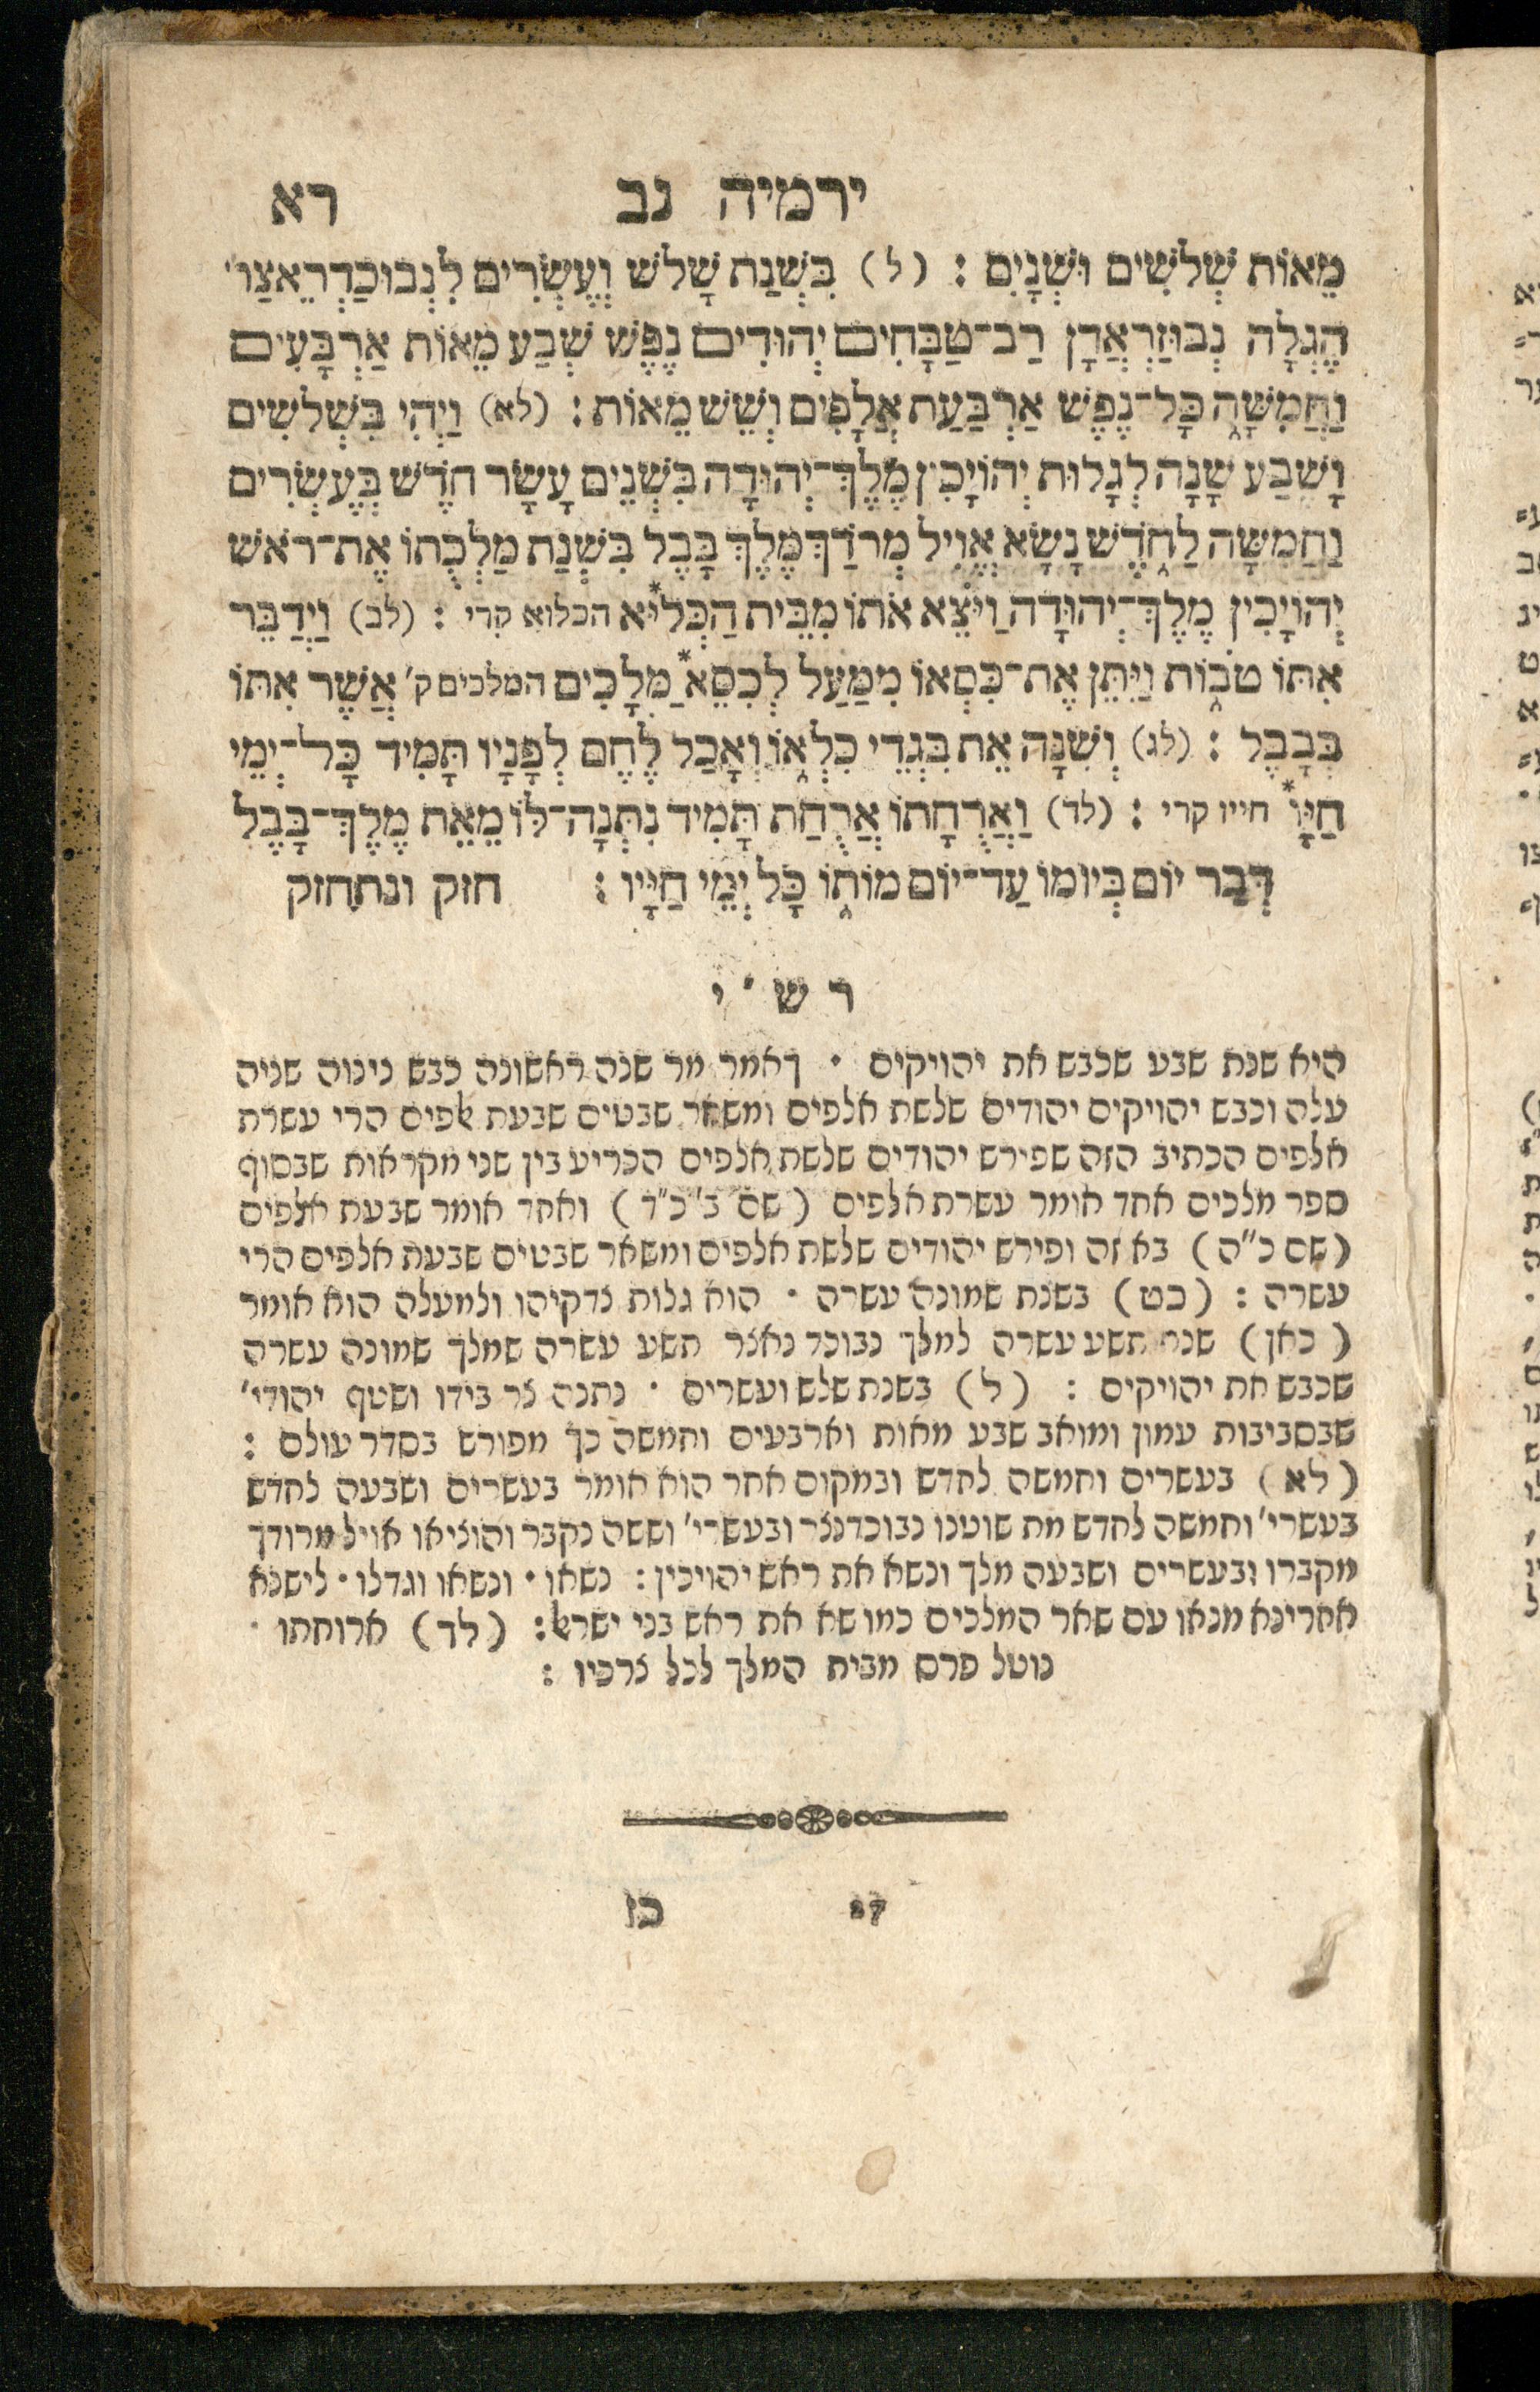 ירמיה נב רא
מֵאוֹת שְׁלֹשִׁים וּשְׁנָיִם : (ל) בִּשְׁנַת שָׁלֹשׁ וְעֶשְׂרִים לִנְבוּכַדְרֶאצַּו'
הֶגְלָה נְבוּזַרְאֲדָן רַב־טַבָּחִים יְהוּדִים נֶפֶשׁ שְׁבַע מֵאוֹת אַרְבָּעִים
וַחֲמִשָּׁה כָּל־נֶפֶשׁ אַרְבַּעַת אֲלָפִים וְשֵׁשׁ מֵאוֹת : (לא) וַיְהִי בִּשְׁלֹשִׁים
וָשֶׁבַע שָׁנָה לְגָלוּת יְהוֹיָכִין מֶלֶךְ־יְהוּדָה בִּשְׁנֵים עָשָׂר חֹדֶשׁ בְּעֶשְׂרִים
וַחֲמִשָּׁה לַחֹדֶשׁ נָשָׂא אֱוִיל מְרֹדַךְ מֶלֶךְ בָּבֶל בִּשְׁנַת מַלְכֻתוֹ אֶת־רֹאשׁ
יְהוֹיָכִין מֶלֶךְ־יְהוּדָה וַיֹּצֵא אֹתוֹ מִבֵּית הַכְּלִיא* הכלוא קרי : (לב) וַיְדַבֵּר
אִתּוֹ טֹבוֹת וַיִּתֵּן אֶת־כִּסְאוֹ מִמַּעַל לְכִסֵּא *מְלָכִים המלכים ק' אֲשֶׁר אִתּוֹ
בְּבָבֶל : (לג) וְשִׁנָּה אֵת בִּגְדֵי כִלְאוֹ וְאָכַל לֶחֶם לְפָנָיו תָּמִיד כָּל־יְמֵי
חַיָּו* חייו קרי : (לד) וַאֲרֻחָתוֹ אֲרֻחַת תָּמִיד נִתְּנָה־לּוֹ מֵאֵת מֶלֶךְ־בָּבֶל
דְּבַר יוֹם בְּיוֹמוֹ עַד־יוֹם מוֹתוֹ כָּל יְמֵי חַיָּיו : חזק ונתחזק
ר ש " י
היא שנת שבע שכבש את יהויקים • דאמר מר שנה ראשונה כבש נינוה שניה
עלה וכבש יהויקים יהודים שלשת אלפים ומשאר שבטים שבעת אלפים הרי עשרת
אלפים הכתיב הזה שפירש יהודים שלשת אלפים הכריע בין שני מקראות שבסוף
ספר מלכים אחד אומר עשרת אלפים (שם ב' כ"ד) ואחד אומר שבעת אלפים
(שם כ"ה) בא זה ופירש יהודים שלשת אלפים ומשאר שבטים שבעת אלפים הרי
עשרה : (כט) בשנת שמונה עשרה • הוא גלות צדקיהו ולמעלה הוא אומר
(כאן) שנת תשע עשרה למלך נבוכד נאצר תשע עשרה שמלך שמונה עשרה
שכבש את יהויקים : (ל) בשנת שלש ועשרים • נתנה צר בידו ושטף יהודי'
שבסביבות עמון ומואב שבע מאות וארבעים וחמשה כך מפורש בסדר עולם :
(לא) בעשרים וחמשה לחדש ובמקום אחר הוא אומר בעשרים ושבעה לחדש
בעשרי' וחמשה לחדש מת שוטנו נבוכדנצר ובעשרי' וששה נקבר והוציאו אויל מרודך
מקברו ובעשרים ושבעה מלך ונשא את ראש יהויכין : נשאו • ונשאו וגדלו • לישנא
אחרינא מנאו עם שאר המלכים כמו שא את ראש בני ישראל : (לד) ארוחתו •
נוטל פרס מבית המלך לכל צרכיו :
27 כז